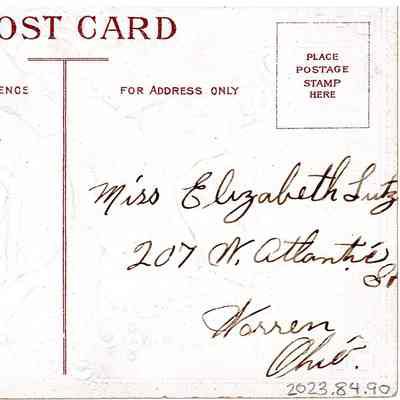 OST CARD
ENCE
FOR ADDRESS ONLY
PLACE
POSTAGE
STAMP
HERE
Miss Elizabeth Lutz
207 N. Atlantic
St
Warren
Ohio.
2023.84.90